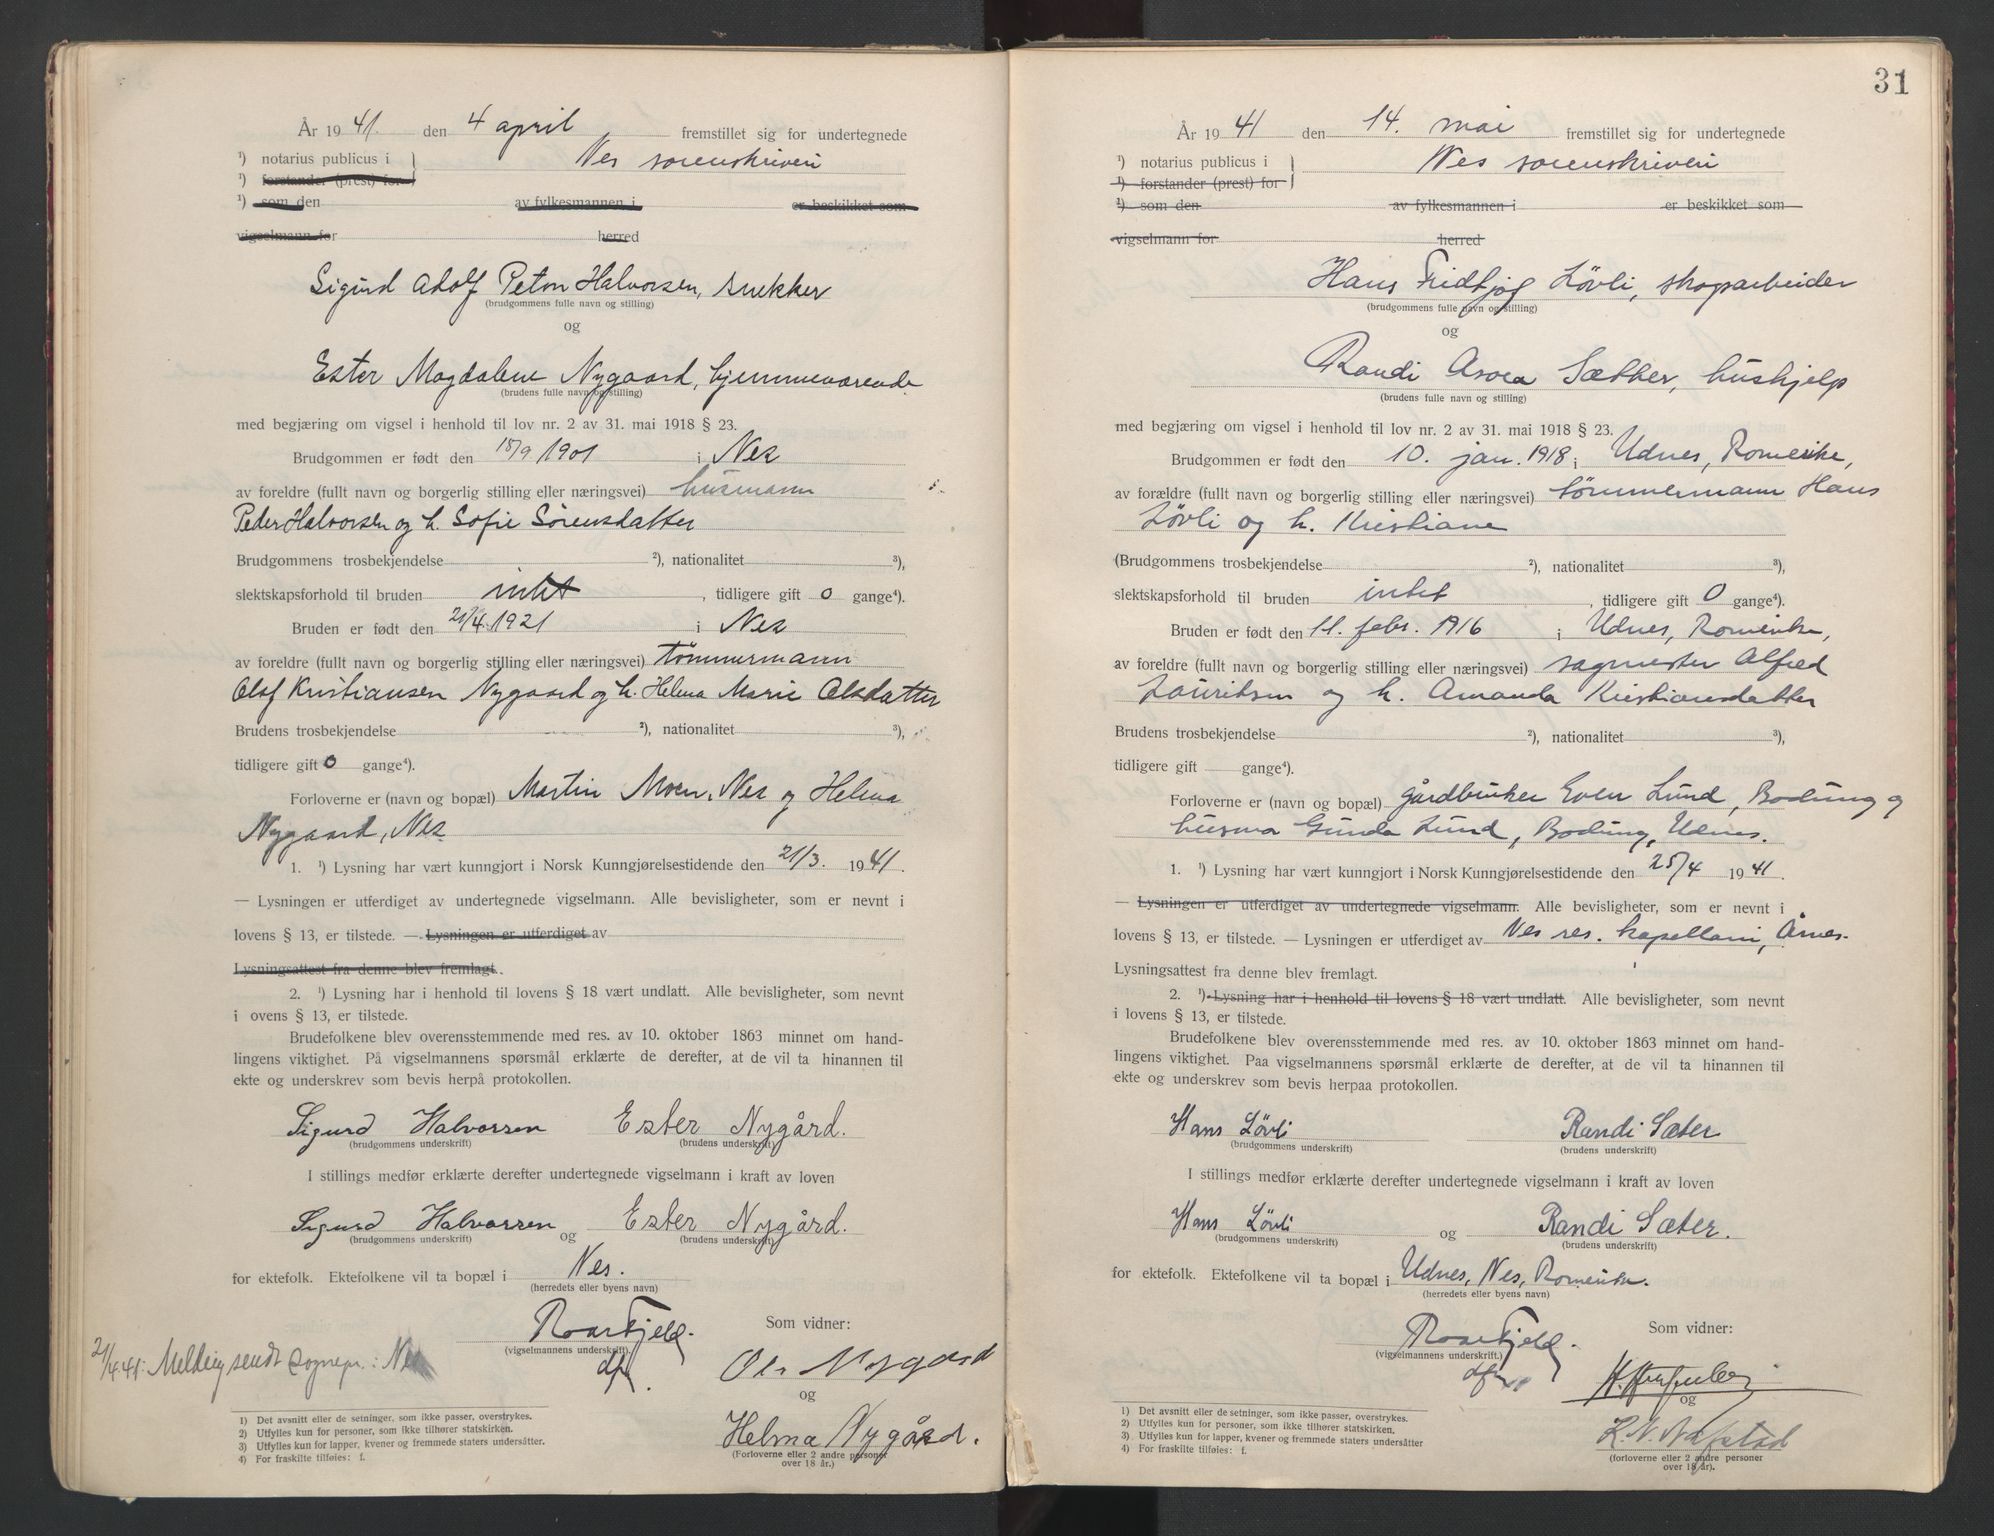 År 1941. den 4 april fremstillet sig for undertegnede
¹) notarius publicus i } Nes sorenskriveri
¹) forstander (prest) for
¹) som den av fylkesmannen i er beskikket som
vigselmann for herred
Sigurd Adolf Peton Halvorsen, snekker
(brudgommens fulle navn og stilling)
og
Ester Magdalene Nygaard, hjemmeværende
(brudens fulle navn og stilling)
med begjæring om vigsel i henhold til lov nr. 2 av 31. mai 1918 § 23.
Brudgommen er født den 18/9 1901 i Nes
av foreldre (fullt navn og borgerlig stilling eller næringsvei) husmann
Peder Halvorsen og h. Sofie Sörensdatter
Brudgommens trosbekjendelse ²), nationalitet ³),
slektskapsforhold til bruden intet, tidligere gift 0 gange⁴).
Bruden er født den 21/4 1921 i Nes
av foreldre (fullt navn og borgerlig stilling eller næringsvei) tömmermann
Olaf Kristiansen Nygaard og h. Helma Marie Olsdatter
Brudens trosbekjendelse ²), nationalitet ³),
tidligere gift 0 gange⁴).
Forloverne er (navn og bopæl) Martin Moen, Nes og Helma
Nygaard, Nes
1. ¹) Lysning har vært kunngjort i Norsk Kunngjørelsestidende den 21/3. 1941.
— Lysningen er utferdiget av undertegnede vigselmann. Alle bevisligheter, som er nevnt i
lovens § 13, er tilstede. — Lysningen er utferdiget av
Lysningsattest fra denne blev fremlagt.
2. ¹) Lysning har i henhold til lovens § 18 vært undlatt. Alle bevisligheter, som nevnt
i ovens § 13, er tilstede.
Brudefolkene blev overensstemmende med res. av 10. oktober 1863 minnet om hand-
lingens viktighet. På vigselmannens spørsmål erklærte de derefter, at de vil ta hinannen til
ekte og underskrev som bevis herpå protokollen.
Sigurd Halvorsen Ester Nygård.
(brudgommens underskrift) (brudens underskrift)
I stillings medfør erklærte derefter undertegnede vigselmann i kraft av loven
Sigurd Halvorsen og Ester Nygård.
(brudgommens underskrift) (brudens underskrift)
for ektefolk. Ektefolkene vil ta bopæl i Nes.
(herredets eller byens navn)
Roar Fjeld. Som vidner:
(vigselmannens underskrift)
dfm.
21/4 41: Melding sendt sognepr. i Nes
Ole Nygaard
og
Helma Nygård.
(Forloverne eller 2 andre personer
over 18 år.)
1) Det avsnitt eller de setninger, som ikke passer, overstrykes.
2) Utfylles kun for personer, som ikke tilhører statskirken.
3) Utfylles kun for lapper, kvener og fremmede staters undersåtter.
4) For fraskilte tilføies: f.
31
År 1941 den 14. mai fremstillet sig for undertegnede
¹) notarius publicus i } Nes sorenskriveri
¹) forstander (prest) for
¹) som den av fylkesmannen i er beskikket som
vigselmann for herred
Hans Fridtjof Lövli, skogsarbeider
(brudgommens fulle navn og stilling)
og
Randi Asora Sætter, hushjelp
(brudens fulle navn og stilling)
med begjæring om vigsel i henhold til lov nr. 2 av 31. mai 1918 § 23.
Brudgommen er født den 10. jan. 1918 i Udnes, Romerike,
av forældre (fullt navn og borgerlig stilling eller næringsvei) tömmermann Hans
Lövli og h. Kristiane
(Brudgommens trosbekjendelse ²), nationalitet ³),
slektskapsforhold til bruden intet, tidligere gift 0 gange⁴).
Bruden er født den 11. febr. 1916 i Udnes, Romerike,
av foreldre (fullt navn og borgerlig stilling eller næringsvei) sagmester Alfred
Lauritsen og h. Amanda Kristiansdatter
Brudens trosbekjendelse ²), nationalitet ³),
tidligere gift gange⁴).
Forloverne er (navn og bopæl) gårdbruker Even Lund, Bodung og
husmor Gunda Lund, Bodung, Udnes.
1. ¹) Lysning har vært kunngjort i Norsk Kunngjørelsestidende den 25/4 1941.
— Lysningen er utferdiget av undertegnede vigselmann. Alle bevisligheter, som er nevnt i
lovens § 13, er tilstede. — Lysningen er utferdiget av Nes res. kapellani, Årnes.
Lysningsattest fra denne blev fremlagt.
2. ¹) Lysning har i henhold til lovens § 18 vært undlatt. Alle bevisligheter, som nevnt
i lovens § 13, er tilstede.
Brudefolkene blev overensstemmende med res. av 10. oktober 1863 minnet om hand-
lingens viktighet. Paa vigselmannens spørsmål erklærte de derefter, at de vil ta hinannen til
ekte og underskrev som bevis herpaa protokollen.
Hans Lövli Randi Sæter
(brudgommens underskrift) (brudens underskrift)
I stillings medfør erklærte derefter undertegnede vigselmann i kraft av loven
Hans Lövli og Randi Sæter.
(brudgommens underskrift) (brudens underskrift)
for ektefolk. Ektefolkene vil ta bopæl i Udnes, Nes, Romerike.
(herredets eller byens navn)
Roar Fjeld. Som vidner:
(vigselmannens underskrift.)
dfm
og
K. N. Nafstad
(forloverne eller 2 andre personer
over 18 år).
1) Det avsnitt eller de setninger, som ikke passer, overstrykes.
2) Utfylles kun for personer, som ikke tilhører statskirken.
3) Utfylles kun for lapper, kvener og fremmede staters undersåtter
4) For fraskilte tilføies: f.